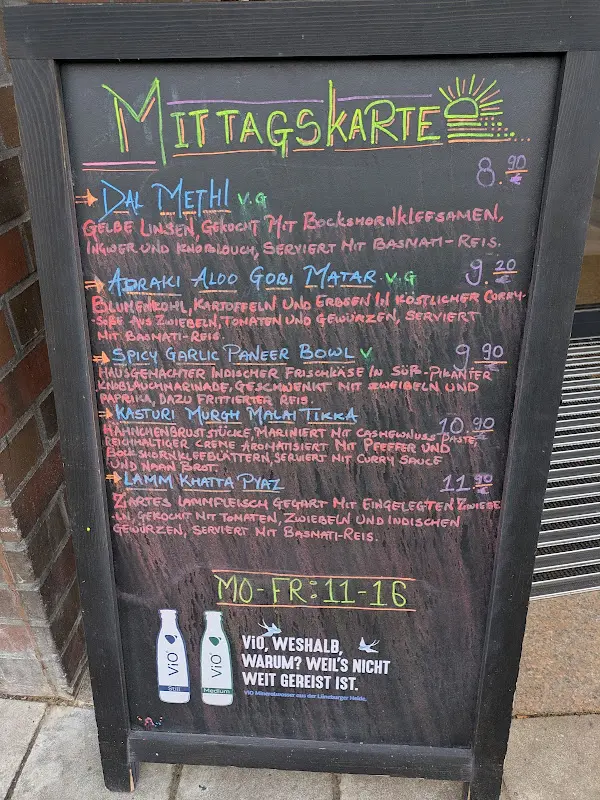 MITTAGSKARTE
8.90 €
DAL METHI V.G
GELBE LINSEN, GEKOCHT MIT BOCKSHORNKLEESAMEN,
INGWER UND KNOBLAUCH, SERVIERT MIT BASMATI-REIS.
ADRAKI ALOO GOBI MATAR V.G 9.20 €
BLUMENKOHL, KARTOFFELN UND ERBSEN IN KÖSTLICHER CURRY-
-SOßE AUS ZWIEBELN, TOMATEN UND GEWÜRZEN, SERVIERT
MIT BASMATI-REIS.
SPICY GARLIC PANEER BOWL V 9.90 €
HAUSGEMACHTER INDISCHER FRISCHKÄSE IN SÜß-PIKANTER
KNOBLAUCHMARINADE, GESCHWENKT MIT ZWIEBELN UND
PAPRIKA, DAZU FRITTIERTER REIS.
KASTURI MURGH MALAI TIKKA 10.90 €
HÄHNCHENBRUSTSTÜCKE, MARINIERT MIT CASHEWNUSS PASTE,
REICHHALTIGER CREME AROMATISIERT MIT PFEFFER UND
BOCKSHORNKLEEBLÄTTERN, SERVIERT MIT CURRY SAUCE
UND NAAN BROT.
LAMM KHATTA PYAZ 11.90 €
ZARTES LAMMFLEISCH GEGART MIT EINGELEGTEN ZWIEBE
LN, GEKOCHT MIT TOMATEN, ZWIEBELN UND INDISCHEN
GEWÜRZEN, SERVIERT MIT BASMATI-REIS.
MO-FR: 11-16
ViO
Still
ViO
Medium
ViO, WESHALB,
WARUM? WEIL'S NICHT
WEIT GEREIST IST.
ViO Mineralwasser aus der Lüneburger Heide.